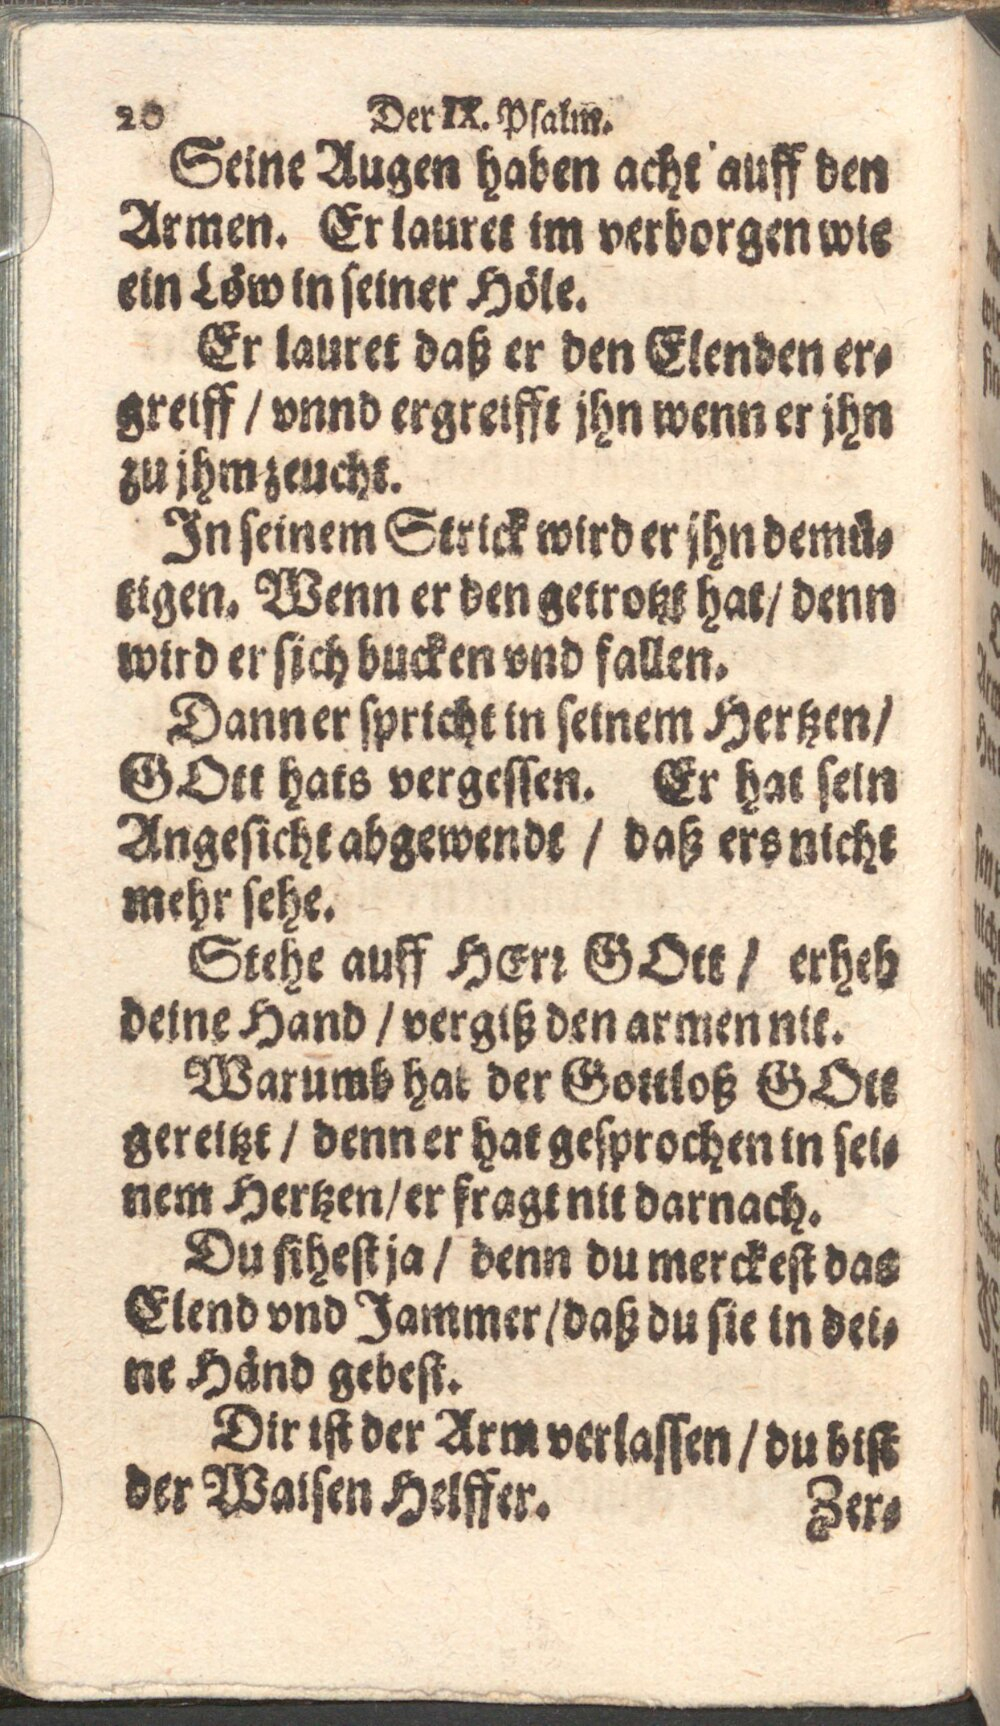 20 Der IX. Psalm.
Seine Augen haben acht auff den
Armen. Er lauret im verborgen wie
ein Löw in seiner Höle.
Er lauret daß er den Elenden er⸗
greiff / vnnd ergreifft jhn wenn er jhn
zu jhm zeucht.
In seinem Strick wird er jhn demü⸗
tigen. Wenn er den getrotzt hat / denn
wird er sich bucken vnd fallen.
Dann er spricht in seinem Hertzen /
GOtt hats vergessen. Er hat sein
Angesicht abgewendt / daß ers nicht
mehr sehe.
Stehe auff HErr GOtt / erheb
deine Hand / vergiß den armen nit.
Warumb hat der Gottloß GOtt
gereitzt / denn er hat gesprochen in sei⸗
nem Hertzen / er fragt nit darnach.
Du sihest ja / denn du merckest das
Elend vnd Jammer / daß du sie in dei⸗
ne Händ gebest.
Dir ist der Arm verlassen / du bist
der Waisen Helffer.
Zer⸗